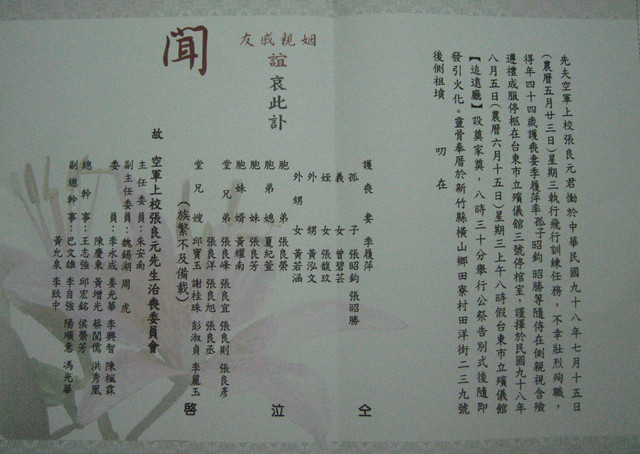 先夫空軍上校張良元君慟於中華民國九十八年七月十五日
(農曆五月廿三日)星期三執行飛行訓練任務，不幸壯烈殉職，
得年四十四歲護喪妻李履萍率孤子昭鈞 昭勝等隨侍在側親視含殮
遵禮成服停柩在台東市立殯儀館三號停棺室，謹擇於民國九十八年
八月五日(農曆六月十五日)星期三上午八時假台東市立殯儀館
【追遠廳】設奠家奠，八時三十分舉行公祭告別式後隨即
發引火化。靈骨奉厝於新竹縣橫山鄉田寮村田洋街二三九號
後側祖墳
叨在
姻親戚友
誼哀此訃
聞
護喪妻 李履萍
孤子 張昭鈞 張昭勝
義女 曾碧芸
姪女 張馥玟
外甥 黃泓文
外甥女 黃若涵
胞弟 張良榮
胞弟媳 夏紀萱
胞妹 張良芳
胞妹婿 黃耀南
堂兄弟 張良峰 張良宜 張良則 張良彥
張良洋 張良旭 張良丞
堂兄嫂 邱寶玉 謝桂珠 彭淑貞 李麗玉
(族繁不及備載)
仝
泣
啓
故 空軍上校張良元先生治喪委員會
主任委員：朱芳南
副主任委員：魏錫湖 周虎
委員：李永成 姜光華 李興智 陳楓霖
陳慶東 黃增光 蔡閩儒 洪秀凰
總幹事：王志強 邱宏銘 侯榮芳
副總幹事：巴文雄 李自強 陽順意 馮光華
黃允泉 李致中